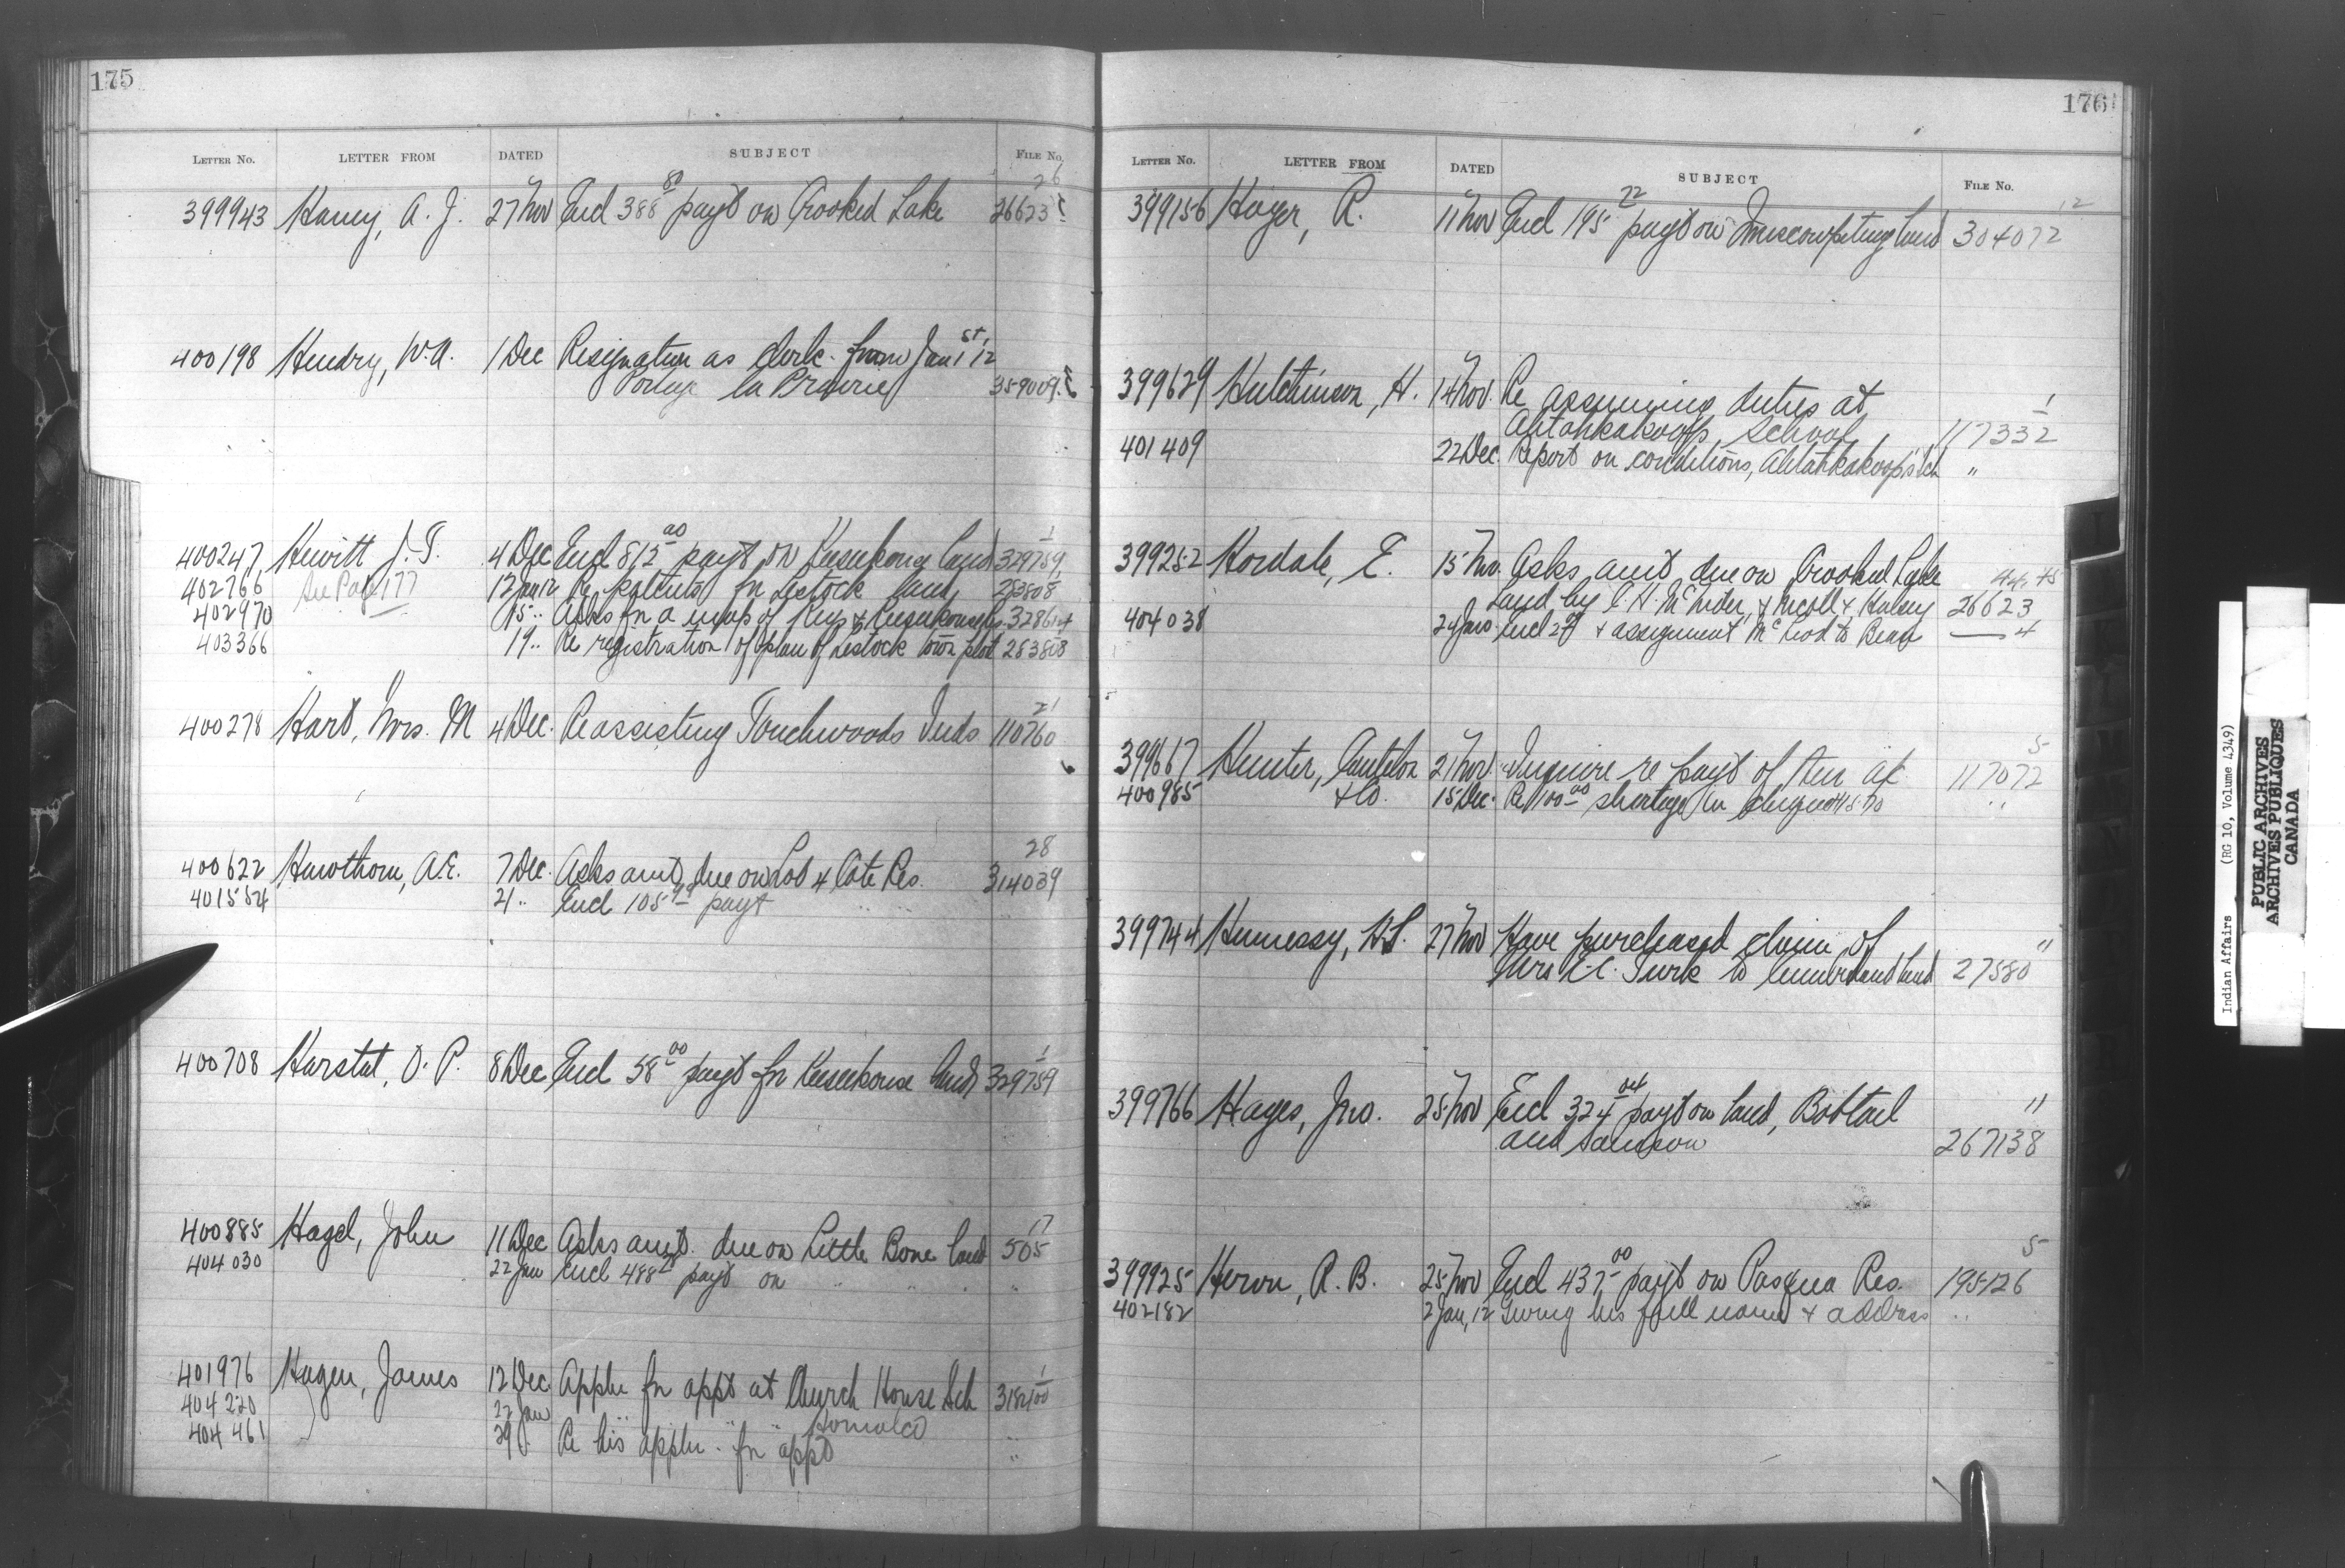 175
LETTER NO. LETTER FROM DATED SUBJECT FILE NO.
26
399943 Haney, A. J. 27 Nov Encl 388 80 payt on Crooked Lake 26623
400198 Hendry, W.A. 1 Dec Resignation as clerk from Jan 1st 12
Portage la Prairie 359009
400247 Hewitt J. T. 4 Dec Encl 812 00 payt on Keesekouse land 329759 1
402766 See Page 177 12 Jan 12 Re patents for Lestock land 253808
402970 15 " Asks for a map of Key & Keesekouse 328614
403366 19 " Re registration of plan of Lestock town plot 253808
21
400278 Hart, Mrs. M 4 Dec. Re assisting Touchwoods Inds 110760
28
400622 Hawthorn, A.E. 7 Dec. Asks amt due on Lot 4 Cote Res. 314039
401554 21 " Encl 105 payt " " "
400708 Harstat, O. P. 8 Dec Encl 58 00 payt for Keesekouse land 329759 1
17
400885 Hagel, John 11 Dec Asks amt. due on Little Bone land 505
404030 22 Jan Encl 488 payt on " " " "
401976 Hagen, James 12 Dec. Appln for appt at Church House Sch 318400 1
404220 22 Jan " " " " Homalco
404461 29 " Re his appln. for appt "
176
LETTER NO. LETTER FROM DATED SUBJECT FILE NO.
12
399156 Hoyer, R. 11 Nov Encl 195 72 payt on land 304072
399629 Hutchinson, H. 14 Nov. Re assuming duties at
Ahtahkakoops School 117332 1
401409 22 Dec. Report on conditions, Ahtahkakoop's Sch "
399252 Hordale, E. 15 Nov. Asks amt due on Crooked Lake 44, 45
land by & Nicoll & Halsey 26623
404038 24 Jan Encl 2 00 & assignment McLeod to Bean — 4
5
399667 Hunter, Cantelon 21 Nov. Inquire re payt of their a/c 117072
400985 & Co. 15 Dec. Re 100 00 shortage in cheque "
399744 Hennessy, 27 Nov Have purchased claim of
Mrs Turk to Cumberland land 27580 11
399766 Hayes, Jno. 25 Nov Encl 324 04 payt on land, Bobtail 11
and Samson 267138
5
399925 Heron, R. B. 25 Nov Encl 437 00 payt on Pasqua Res. 195126
402182 2 Jan, 12 Giving his full name & address "
Indian Affairs (RG 10, Volume 4349)
PUBLIC ARCHIVES
ARCHIVES PUBLIQUES
CANADA